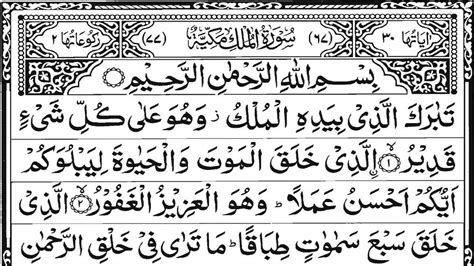 اٰيَاتُهَا ٣٠ (٦٧) سُوْرَةُ الْمُلْكِ مَكِّيَّةٌ (٧٧) رُكُوْعَاتُهَا ٢
بِسْمِ اللّٰهِ الرَّحْمٰنِ الرَّحِيْمِ
تَبٰرَكَ الَّذِيْ بِيَدِهِ الْمُلْكُ ز وَهُوَ عَلٰى كُلِّ شَيْءٍ
قَدِيْرُ ۙ﴿١﴾ الَّذِيْ خَلَقَ الْمَوْتَ وَالْحَيٰوةَ لِيَبْلُوَكُمْ
اَيُّكُمْ اَحْسَنُ عَمَلًا ؕ وَهُوَ الْعَزِيْزُ الْغَفُوْرُ ۙ﴿٢﴾ الَّذِيْ
خَلَقَ سَبْعَ سَمٰوٰتٍ طِبَاقًا ؕ مَا تَرٰى فِيْ خَلْقِ الرَّحْمٰنِ